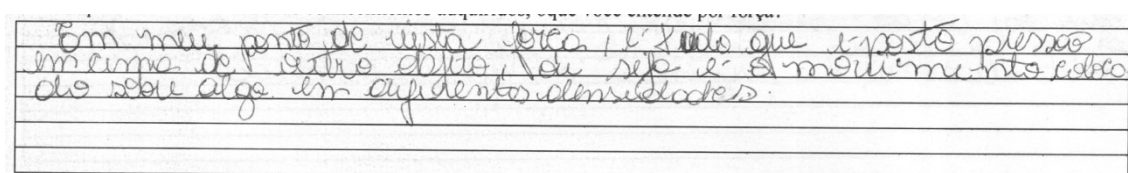 adquiridos, o que você entende por força?
Em meu ponto de vista força, é tudo que é posto pressão
em cima de outro objito, ou seja é o movimento coloca
do sobre algo em diferentes densidades.